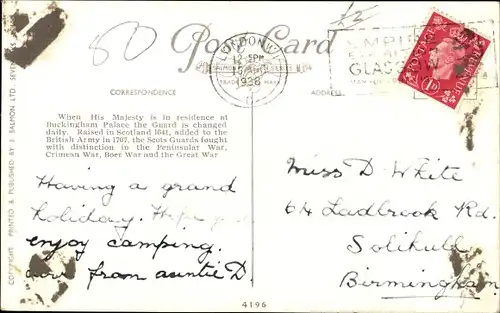 £2
80
Post Card
LONDON. W.
12 15 PM
1938
EMPIRE
GLASGOW
POSTAGE
REVENUE
1D
SALMON SERIES
TRADE MARK
CORRESPONDENCE
ADDRESS
When His Majesty is in residence at
Buckingham Palace the Guard is changed
daily. Raised in Scotland 1641, added to the
British Army in 1707, the Scots Guards fought
with distinction in the Peninsular War,
Crimean War, Boer War and the Great War
Having a grand
holiday. Hope you
enjoy camping.
love from auntie D.
Miss D White
64 Ladbrook Rd.
Solihull
Birmingham
4196
COPYRIGHT PRINTED & PUBLISHED BY J. SALMON LTD.